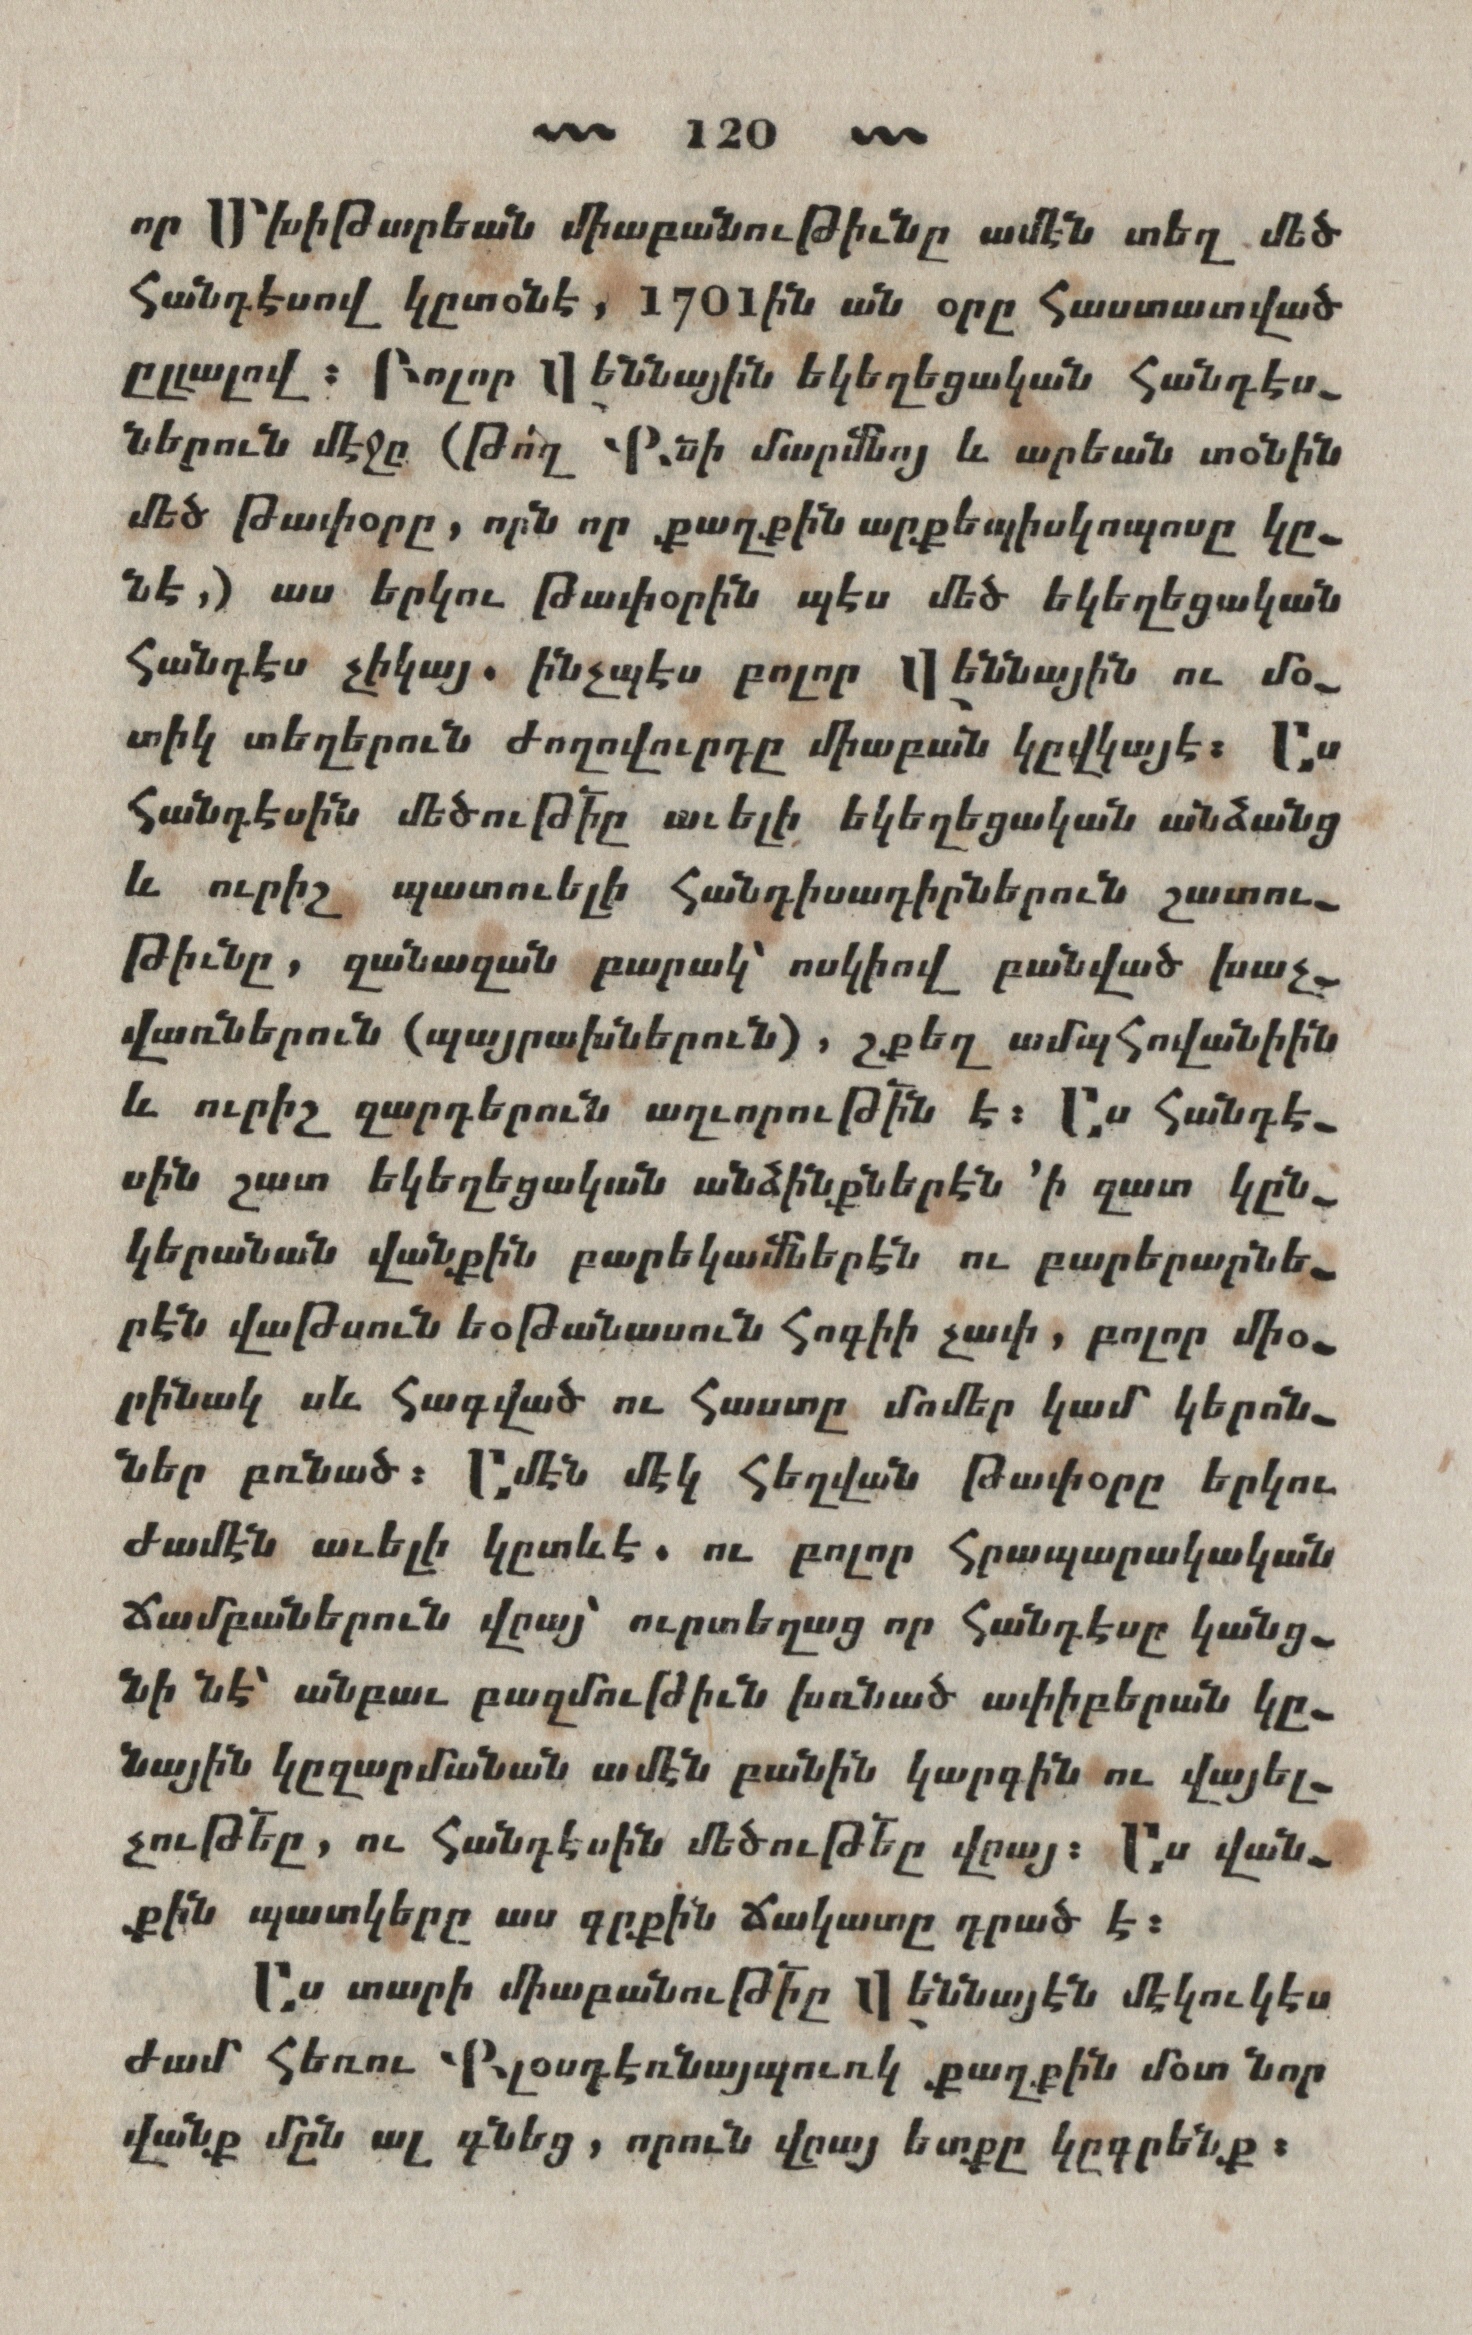 120
որ Մխիթարեան միաբանութիւնը ամէն տեղ մեծ
հանդէսով կըտօնէ, 1701ին ան օրը հաստատված
ըլլալով։ Բոլոր Վեննային եկեղեցական հանդէս֊
ներուն մէջը (թո՛ղ Քնի մարմնոյ և արեան տօնին
մեծ թափօրը, որն որ քաղքին արքեպիսկոպոսը կը֊
նէ,) աս երկու թափօրին պէս մեծ եկեղեցական
հանդէս չիկայ. ինչպէս բոլոր Վեննային ու մօ֊
տիկ տեղերուն ժողովուրդը միաբան կըվկայէ։ Աս
հանդէսին մեծութիը աւելի եկեղեցական անձանց
և ուրիշ պատուելի հանդիսադիրներուն շատու֊
թիւնը, զանազան բարակ՝ ոսկիով բանված խաչ֊
վառներուն (պայրախներուն), շքեղ ամպհովանիին
և ուրիշ զարդերուն աղւորութին է։ Աս հանդէ֊
սին շատ եկեղեցական անձինքներէն ՚ի զատ կըն֊
կերանան վանքին բարեկամներէն ու բարերարնե֊
րէն վաթսուն եօթանասուն հոգիի չափ, բոլոր միօ֊
րինակ սև հագված ու հաստը մոմեր կամ կերոն֊
ներ բռնած։ Ամէն մէկ հեղվան թափօրը երկու
ժամէն աւելի կըտևէ. ու բոլոր հրապարակական
ճամբաներուն վըայ՝ ուրտեղաց որ հանդէսը կանց֊
նի նէ՝ անբաւ բազմութիւն խռնած ափիբերան կը֊
նային կըզարմանան ամէն բանին կարգին ու վայել֊
չութեը, ու հանդէսին մեծութեը վըայ։ Աս վան֊
քին պատկերը աս գըքին ճակատը դրած է։
Աս տարի միաբանութիը Վեննայէն մէկուկէս
ժամ հեռու Քլօսդէռնայպուռկ քաղքին մօտ նոր
վանք մըն ալ գնեց, որուն վըայ ետքը կըգրենք։